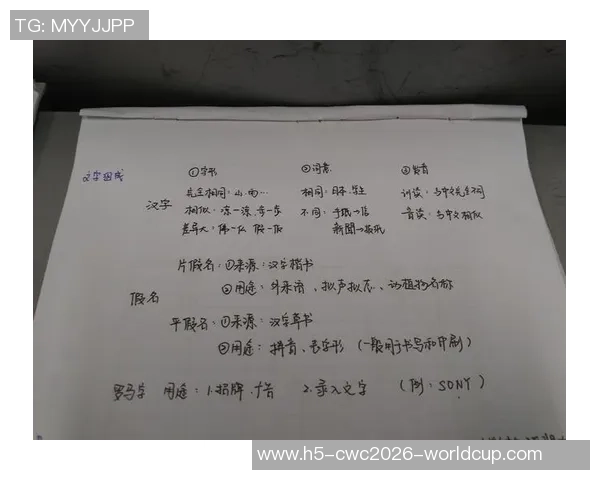 TG: MYYJJPP
文字组成
①字形 ②词意 ③发音
汉字
完全相同：山、雨… 相同：日本、学生 训读：与中文完全不同
相似：凉一涼、步一歩 不同：手紙→信 音读：与中文相似
差异大： 新聞→报纸
片假名：①来源：汉字楷书
②用途：外来语、拟声拟态、动植物名称
假名
平假名：①来源：汉字草书
②用途：拼音、表字形（一般用于书写和印刷）
罗马字 用途：1.招牌、广告 2.录入文字 （例：SONY）
www.h5-cwc2026-worldcup.com